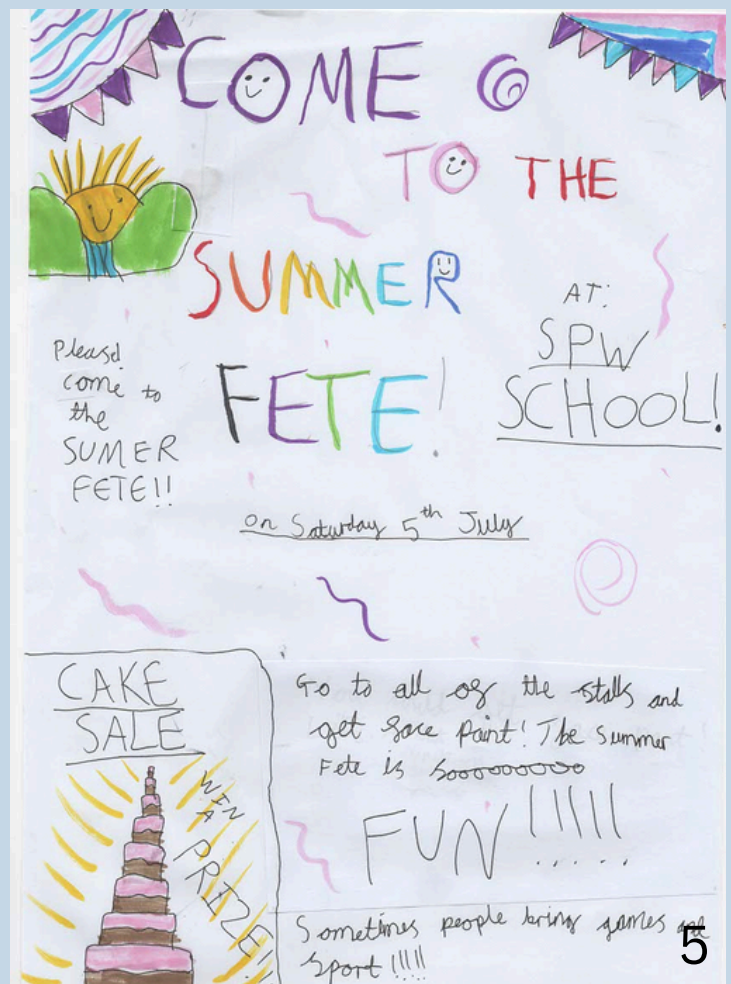 COME
TO THE
SUMMER
FETE!
AT:
SPW
SCHOOL!
Pleasd
come to
the
SUMER
FETE!!
on Saturday 5th July
CAKE
SALE
WIN
A
PRIZE!!
Go to all of the stalls and
get face paint! The Summer
Fete is Sooooooooo
FUN!!!!!
Sometimes people bring games and
Sport!!!!!
5